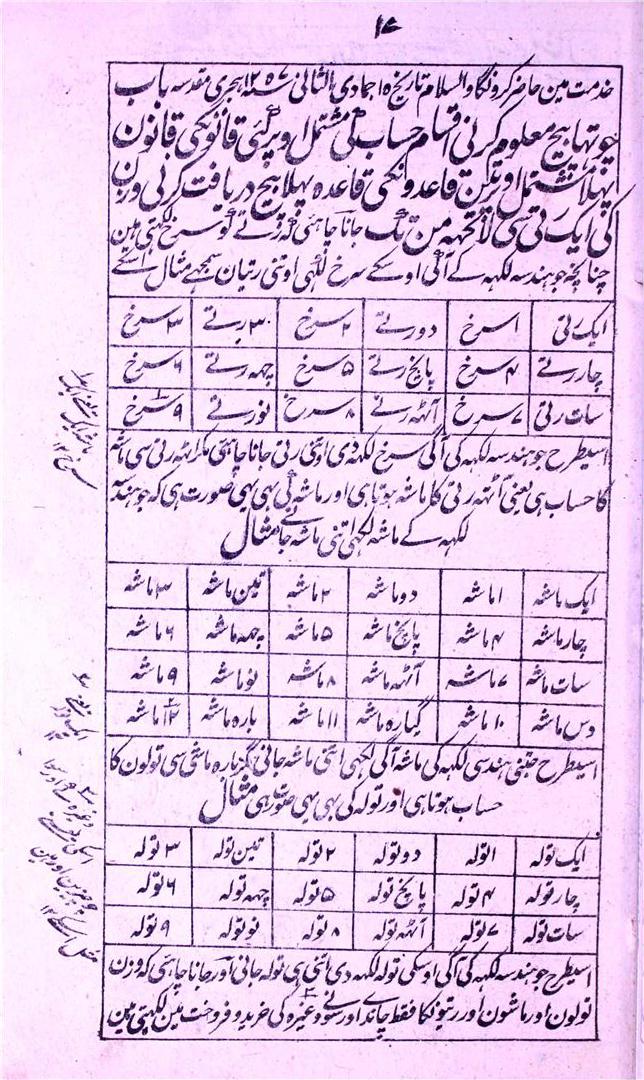 ۱۷
خدمت مین حاضر کرونگا والسلام تاریخ ۱۵ جمادی الثانی سنه ۱۲۵۷ ہجری مقدسہ باب
چوتہا بیچ معلوم کرنی اقسام حساب کی مشتمل اوپر کئی قانونکی قانون
پہلا مشتمل اوپر تین قاعدونکی قاعدہ پہلا بیچ دریافت کرنی وزن
کی ایک رتی سی لا تحہہ من تک جانا چاہئی کہ رتے کو سرخ لکہتی ہین
چنانچہ جو ہندسہ لکہہ کے آگی اوسکے سرخ لکہی اوتنی رتیان سمجہے مثال اسکے
ایک رتی ۱ سرخ دو رتے ۲ سرخ ۳۰ رتے ۳ سرخ
چار رتے ۴ سرخ پانچ رتے ۵ سرخ چہہ رتے ۶ سرخ
سات رتی ۷ سرخ آٹہہ رتے ۸ سرخ نو رتے ۹ سرخ
اسیطرح جو ہندسہ لکہہ کی آگی سرخ لکہہ دی اوتنی رتی جانا چاہئی مگر آٹہہ رتی سی ماشہ
کا حساب ہی یعنی آٹہہ رتی کا ماشہ ہوتا ہی اور ماشہ کی بہی یہی صورت ہی کہ جو ہندسہ
لکہہ کے ماشہ لکہی اتنی ماشہ جانے مثال
ایک ماشہ ۱ ماشہ دو ماشہ ۲ ماشہ تین ماشہ ۳ ماشہ
چار ماشہ ۴ ماشہ پانچ ماشہ ۵ ماشہ چہہ ماشہ ۶ ماشہ
سات ماشہ ۷ ماشہ آٹہہ ماشہ ۸ ماشہ نو ماشہ ۹ ماشہ
دس ماشہ ۱۰ ماشہ گیارہ ماشہ ۱۱ ماشہ بارہ ماشہ ۱۲ ماشہ
اسیطرح جتنی ہندسی لکہہ کی ماشہ آگی لکہی اتنی ماشہ جانی مگر بارہ ماشی سی تولون کا
حساب ہوتا ہی اور تولہ کی بہی یہی صورت ہی مثال
ایک تولہ ۱ تولہ دو تولہ ۲ تولہ تین تولہ ۳ تولہ
چار تولہ ۴ تولہ پانچ تولہ ۵ تولہ چہہ تولہ ۶ تولہ
سات تولہ ۷ تولہ آٹہہ تولہ ۸ تولہ نو تولہ ۹ تولہ
اسیطرح جو ہندسہ لکہہ کی آگی اوسکی تولہ لکہہ دی اتنی ہی تولہ جانی اور جانا چاہئی کہ وزن
تولون اور ماشون اور رتیونکا فقط چاندے اور سونے وغیرہ کی خرید و فروخت مین لکہتی ہین